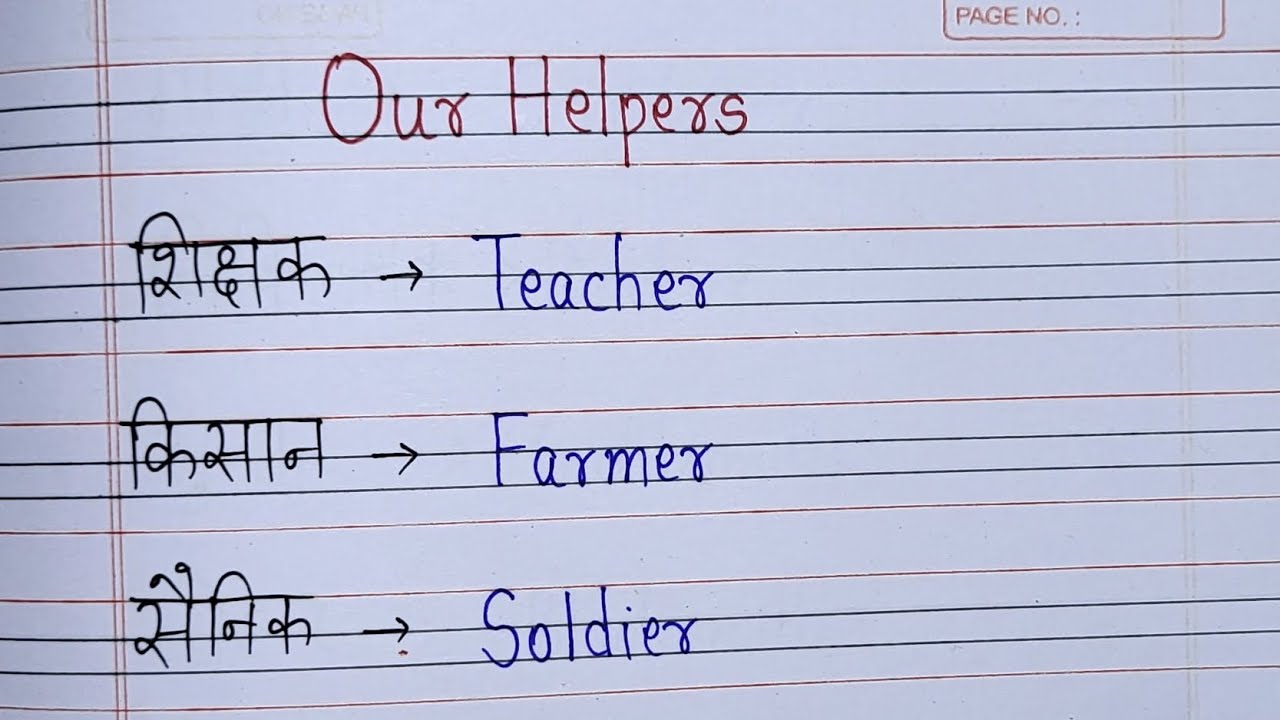 PAGE NO. :
Our Helpers
शिक्षक → Teacher
किसान → Farmer
सैनिक → Soldier